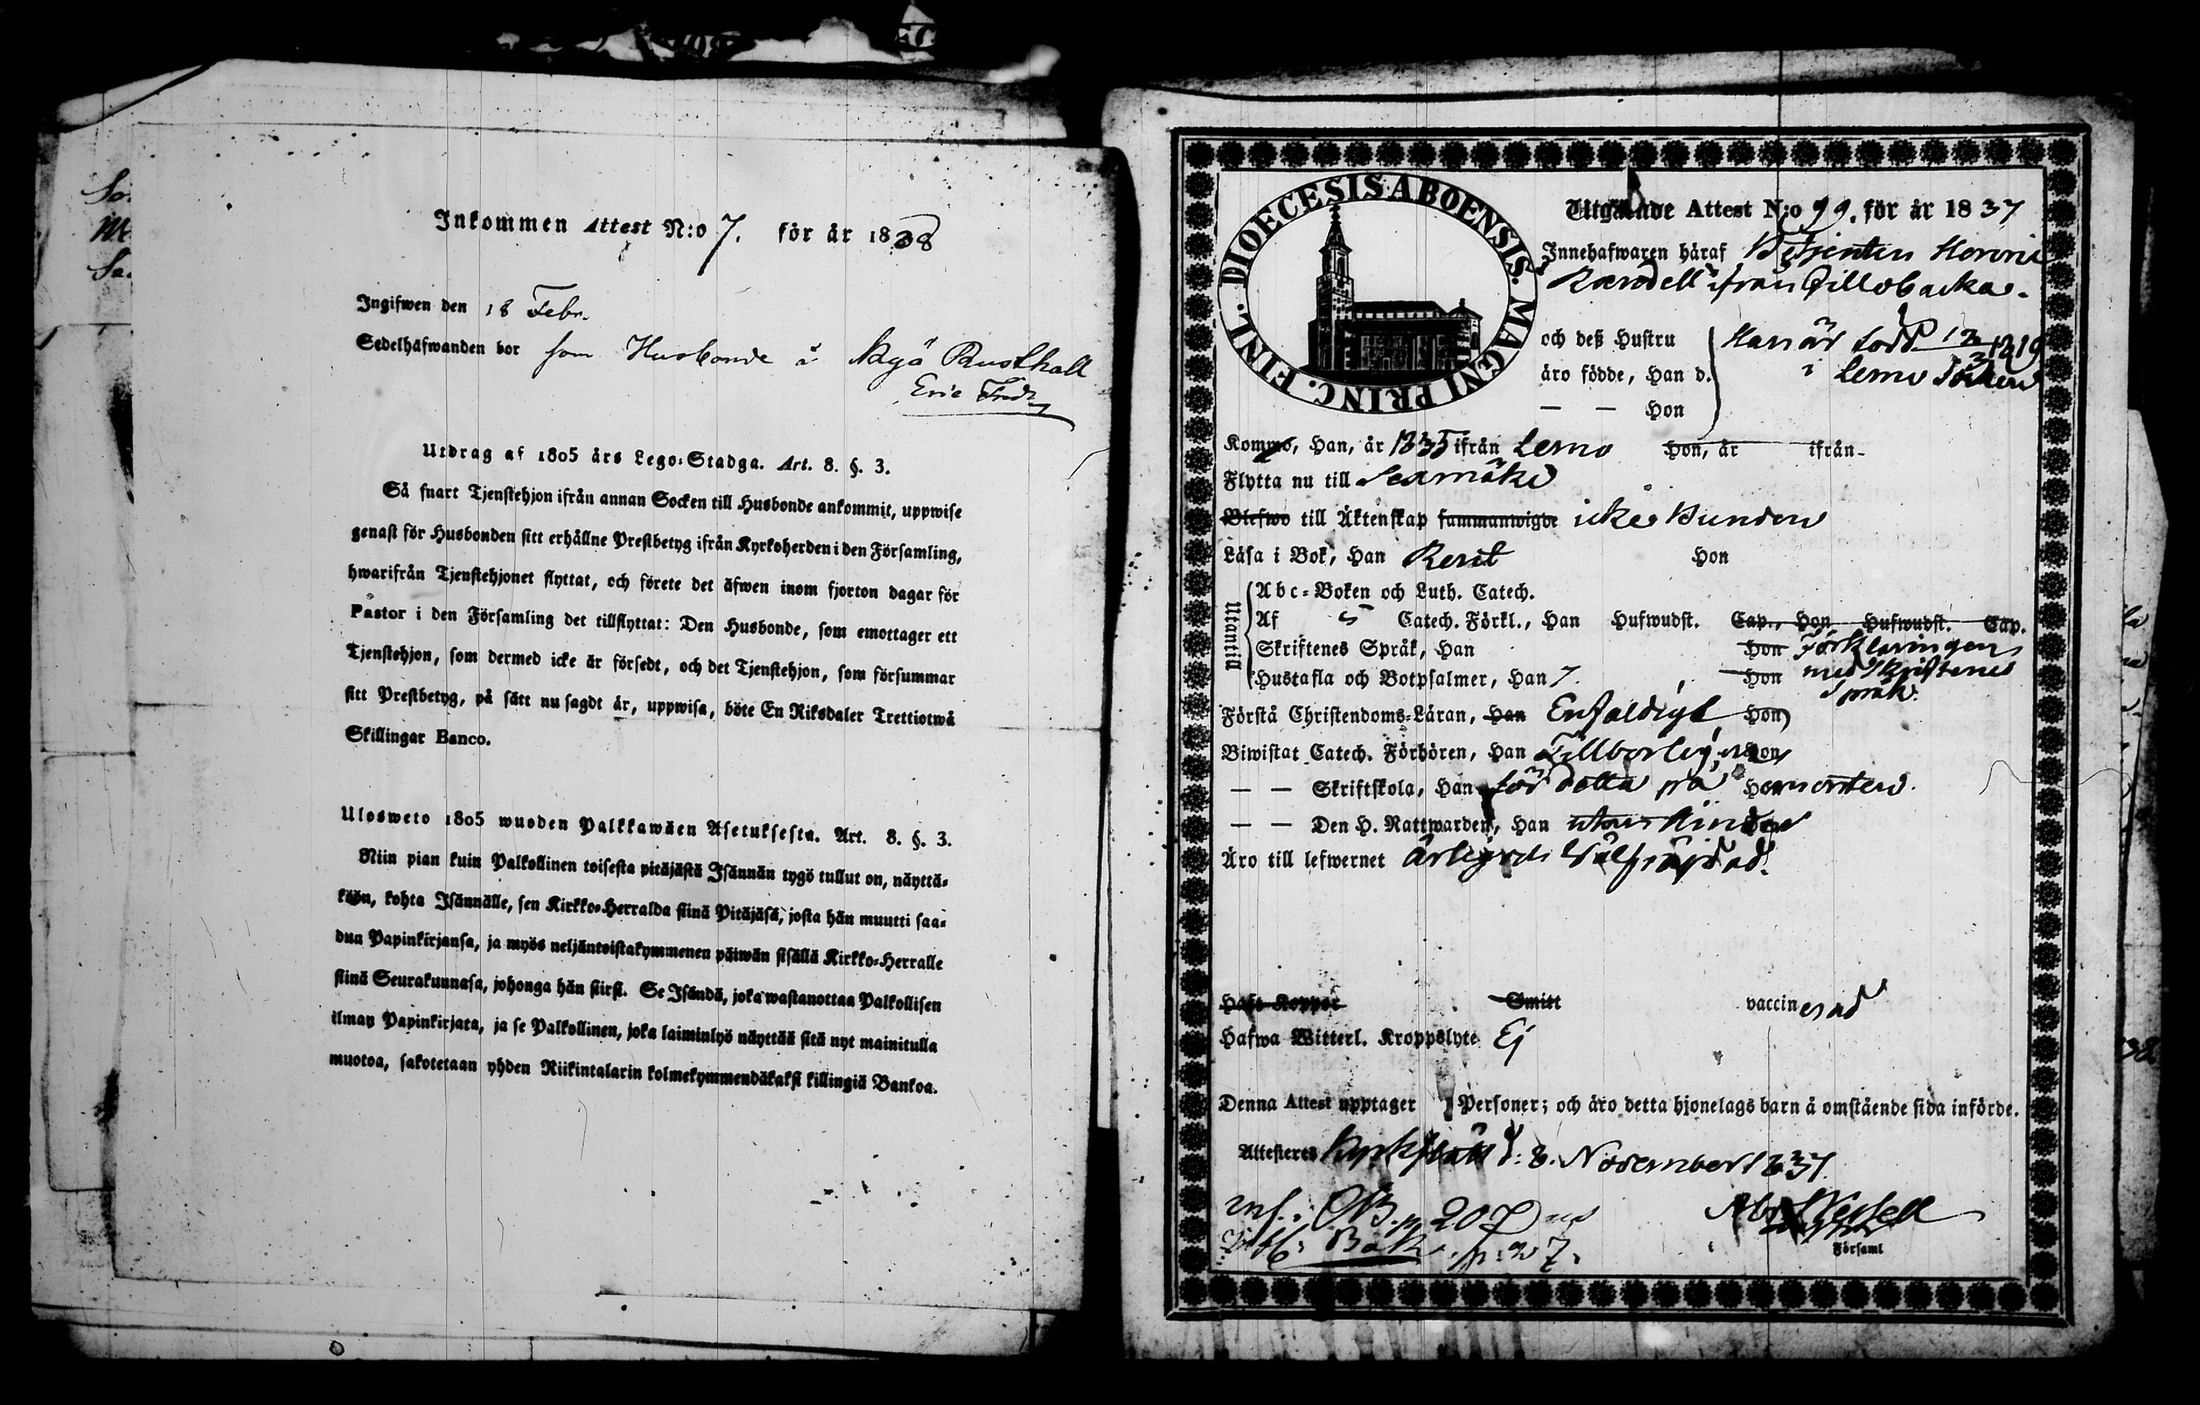 Inkommen Attest N:o 7. för år 1838
Ingifwen den 18 Febr.
Sedelhafwanden bor som Husbonde å Rusthall
Eric
Utdrag af 1805 års Lego-Stadga. Art. 8. §. 3.
Så snart Tjenstehjon ifrån annan Socken till Husbonde ankommit, uppwise
genast för Husbonden sitt erhållne Prestbetyg ifrån Kyrkoherden i den Församling,
hwarifrån Tjenstehjonet flyttat, och förete det äfwen inom fjorton dagar för
Pastor i den Församling det tillflyttat: Den Husbonde, som emottager ett
Tjenstehjon, som dermed icke är försedt, och det Tjenstehjon, som försummar
sitt Prestbetyg, på sätt nu sagdt är, uppwisa, böte En Riksdaler Trettiotwå
Skillingar Banco.
Ulosweto 1805 wuoden Palkkawäen Asetuksesta. Art. 8. §. 3.
Niin pian kuin Palkollinen toisesta pitäjästä Isännän tygö tullut on, näyttä-
köön, kohta Isännälle, sen Kirkko-Herralda siinä Pitäjäsä, josta hän muutti saa-
dun Papinkirjansa, ja myös neljäntoistakymmenen päiwän sisällä Kirkko-Herralle
siinä Seurakunnasa, johonga hän siirsi. Se Isändä, joka wastanottaa Palkollisen
ilman Papinkirjata, ja se Palkollinen, joka laiminlyö näyttää sitä nyt mainitulla
muotoa, sakotetaan yhden Riikintalarin kolmekymmendäkaksi killingiä Bankoa.
DIOECESIS ABOENSIS. MAGNI PRINC. FINL.
Utgående Attest N:o 99. för år 1837
Innehafwaren häraf Betjenten
ifrån Gillobacka.
och deß Hustru Han är född 12/3 1819
äro födde, Han d. i Lemo Socken
— — Hon
Kommo, Han, år 1835 ifrån Lemo Hon, år ifrån
Flytta nu till Sexmäki
Blefwo till Äktenskap sammanwigde icke bunden
Läsa i Bok, Han Rent Hon
Utantill
Abc-Boken och Luth. Catech.
Af 5 Catech. Förkl., Han Hufwudst. Cap., Hon Hufwudst. Cap.
Skriftenes Språk, Han Hon Förklaringen
Hustafla och Botpsalmer, Han 7. Hon med Skriftenes
Språk.
Förstå Christendoms-Läran, Han Enfaldigt Hon
Biwistat Catech. Förhören, Han Tillbörligen Hon
— — Skriftskola, Han för detta på Hon orten.
— — Den H. Nattwarden, Han utan hinder
Äro till lefwernet ärlig och wälfräjdad.
Haft Koppor Smitt vaccinerad
Hafwa Witterl. Kroppslyte Ej
Denna Attest upptager 1 Personer; och äro detta hjonelags barn å omstående sida införde.
Attesteres Kyrkslätt d: 8. November 1837.
p. 207
Bok. p: 27.
Församl